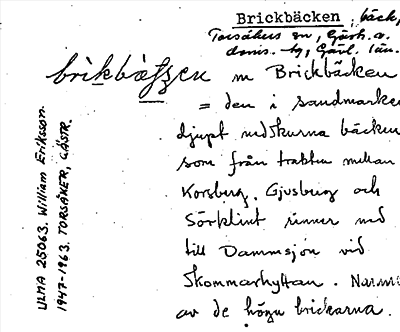 Brickbäcken, bäck,
Torsåkers sn, Gästr.
doms. hg, Gävl. län.
brikbäţţen m Brickbäcken
= den i sandmarken
djupt nedskurna bäcken
som från trakten mellan
Korsberg, Gjusberg och
Sörklint rinner ned
till Dammsjön vid
Skommarhyttan. Namnet
av de höga brickarna.
ULMA 25063. William Eriksson.
1947-1963. TORSÅKER, GÄSTR.